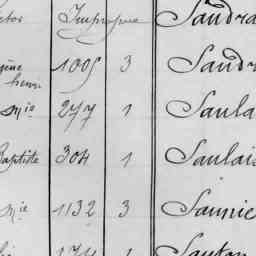 ctor Impropre Saudra
gène
henri 1005 3 Saudr
Mie 277 1 Saula
Baptiste 304 1 Saulais
Mie 1132 3 Saunie
1 Sauton